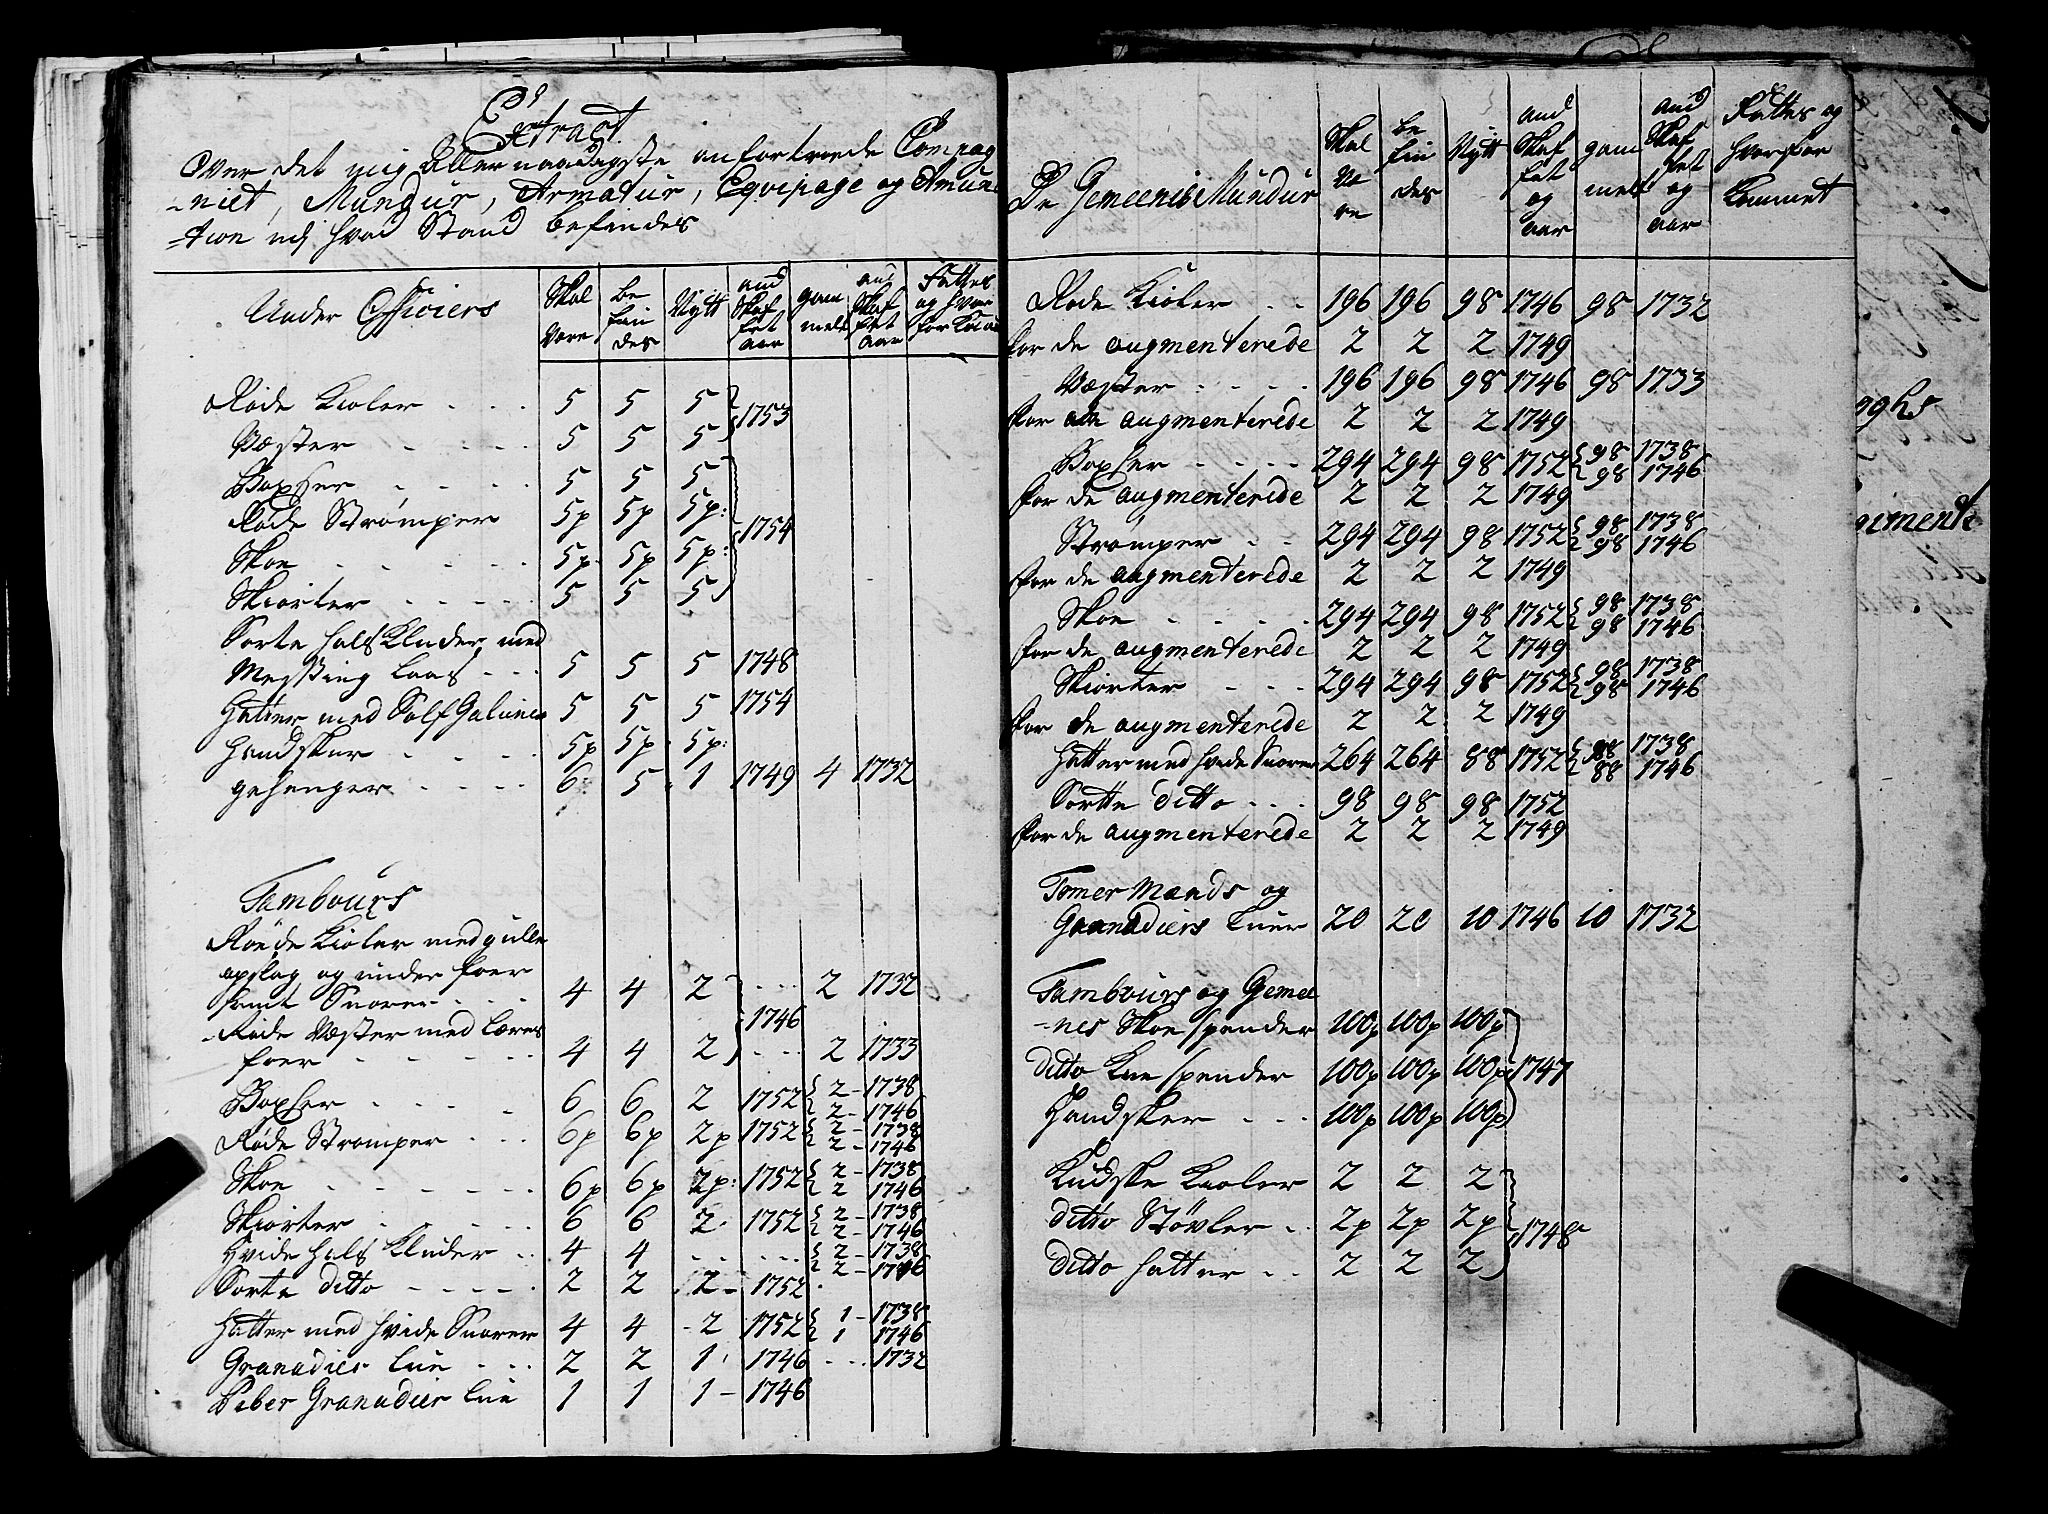 Extract
Over det mig Allernaadigste anfortroede Compag
-niet, Mundur, Armatur, Equipage og Amuni
-tion udj hvad Stand befindes
Under Officiers | Skal Være | be fin des | Nytt | and Skaf fet aar | gam melt | and Skaf fet aar | Fattes og hvor for
Røde Kioler - - - 5 5 5 } 1753
Væster - - - - 5 5 5
Boxser - - - - 5 5 5 }
Røde Strømper 5p 5p 5p: 1754
Skoe - - - - - 5p 5p 5p:
Skiorter - - - - 5 5 5
Sorte hals Kluder med
Messing Laas - - - 5 5 5 1748
Hatter med Sølf Galuner 5 5 5 1754
Handsker - - - - 5p 5p 5p:
gehenger - - - - 6 5 1 1749 4 1732
Tambours
Røde Kioler med gulle
opslag og under foer
samt Snorer - - - 4 4 2 } - - - 2 1732
1746
Røde Væster med Læres
foer - - - - - 4 4 2 - - - 2 1733
Boxser - - - - 6 6 2 1752 { 2 - 1738
2 - 1746
Røde Strømper - - - 6p 6p 2p 1752 { 2 - 1738
2 - 1746
Skoe - - - - - 6p 6p 2p: 1752 { 2 - 1738
2 1746
Skiorter - - - - 6 6 2 1752 { 2 - 1738
2 - 1746
Hvide hals Kluder - - 4 4 - - - - - { 2 - 1738
2 - 1746
Sorte ditto - - - - - 2 2 2 - 1752
Hatter med hvide Snorer 4 4 - 2 1752 { 1 - 1738
1 1746
Granadier Lue - - - 2 2 1 1746 - - - 1732
Piber Granadier Lue 1 1 1 - 1746
De Gemeenes Mundur | Skal Væ re | be fin des | Nytt | and Skaf fet og aar | gam melt | and Skaf fet og aar | Fattes og hvorfor kommet
Røde Kioler - - 196 196 98 1746 98 1732
for de augmenterede 2 2 2 1749
Væster - - - - 196 196 98 1746 98 1733
for de augmenterede 2 2 2 1749
Boxser - - - - 294 294 98 1752 { 98 1738
98 1746
for de augmenterede 2 2 2 1749
Strømper - - 294 294 98 1752 { 98 1738
98 1746
for de augmenterede 2 2 2 1749
Skoe - - - - 294 294 98 1752 { 98 1738
98 1746
for de augmenterede 2 2 2 1749
Skiorter - - - 294 294 98 1752 { 98 1738
98 1746
for de augmenterede 2 2 2 1749
Hatter med hvide Snorer 264 264 88 1752 { 88 1738
88 1746
Sortte ditto - - - 98 98 98 1752
for de augmenterede 2 2 2 1749
Tømer Mands og
Granadiers Luer 20 20 10 1746 10 1732
Tambours og Gemee
-nes Skoe spender 100p 100p 100p }
ditto Knæ spender 100p 100p 100p 1747
Handsker - - - 100p 100p 100p
Kudske Kioler 2 2 2 }
ditto Støvler - - 2p 2p 2p 1748
ditto hatter - - 2 2 2